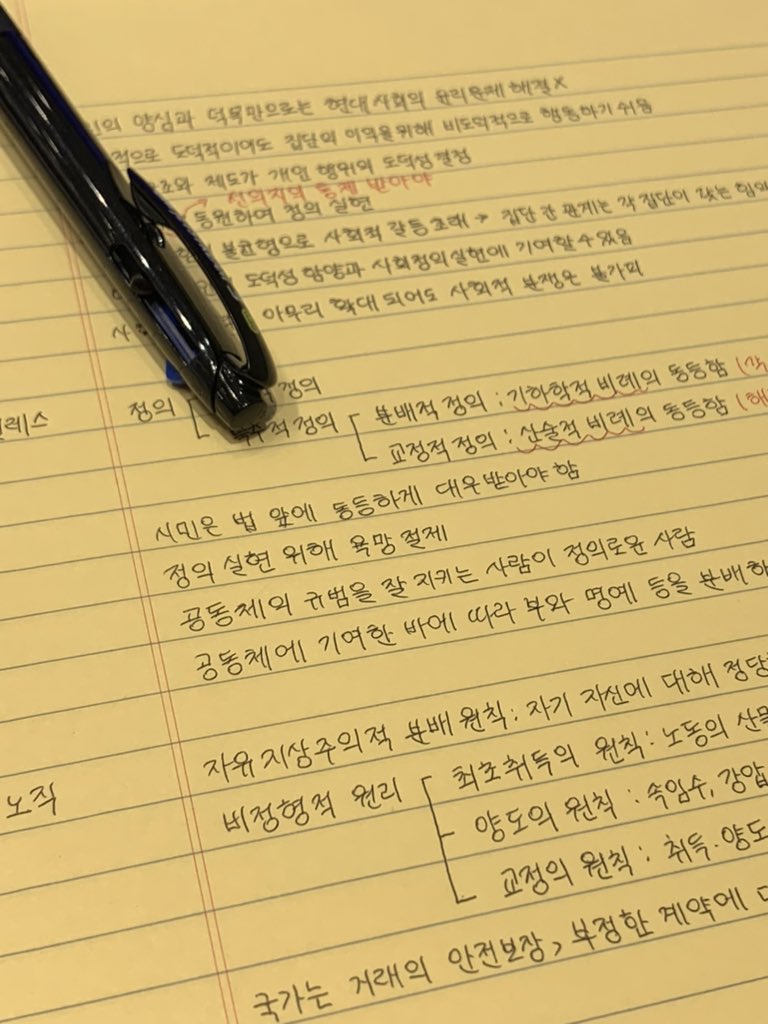 양심과 덕목만으로는 현대사회의 윤리문제 해결 X
적으로 도덕적이어도 집단의 이익을 위해 비도덕적으로 행동하기 쉬움
제도가 개인 행위의 도덕성 결정
선의지의 통제 받아야
동원하여 정의 실현
불균형으로 사회적 갈등 초래 → 집단 간 관계는 각 집단이 갖는 힘의
도덕성 함양과 사회정의 실현에 기여할 수 있음
아무리 확대 되어도 사회적 분쟁은 불가피
정의
정의
적 정의
분배적 정의 : 기하학적 비례의 동등함
교정적 정의 : 산술적 비례의 동등함
시민은 법 앞에 동등하게 대우받아야 함
정의 실현 위해 욕망 절제
공동체의 규범을 잘 지키는 사람이 정의로운 사람
공동체에 기여한 바에 따라 부와 명예 등을 분배하
노직
자유지상주의적 분배 원칙 : 자기 자신에 대해 정당
비정형적 원리
최초취득의 원칙 : 노동의 산물
양도의 원칙 : 속임수, 강압
교정의 원칙 : 취득·양도
국가는 거래의 안전보장, 부정한 계약에